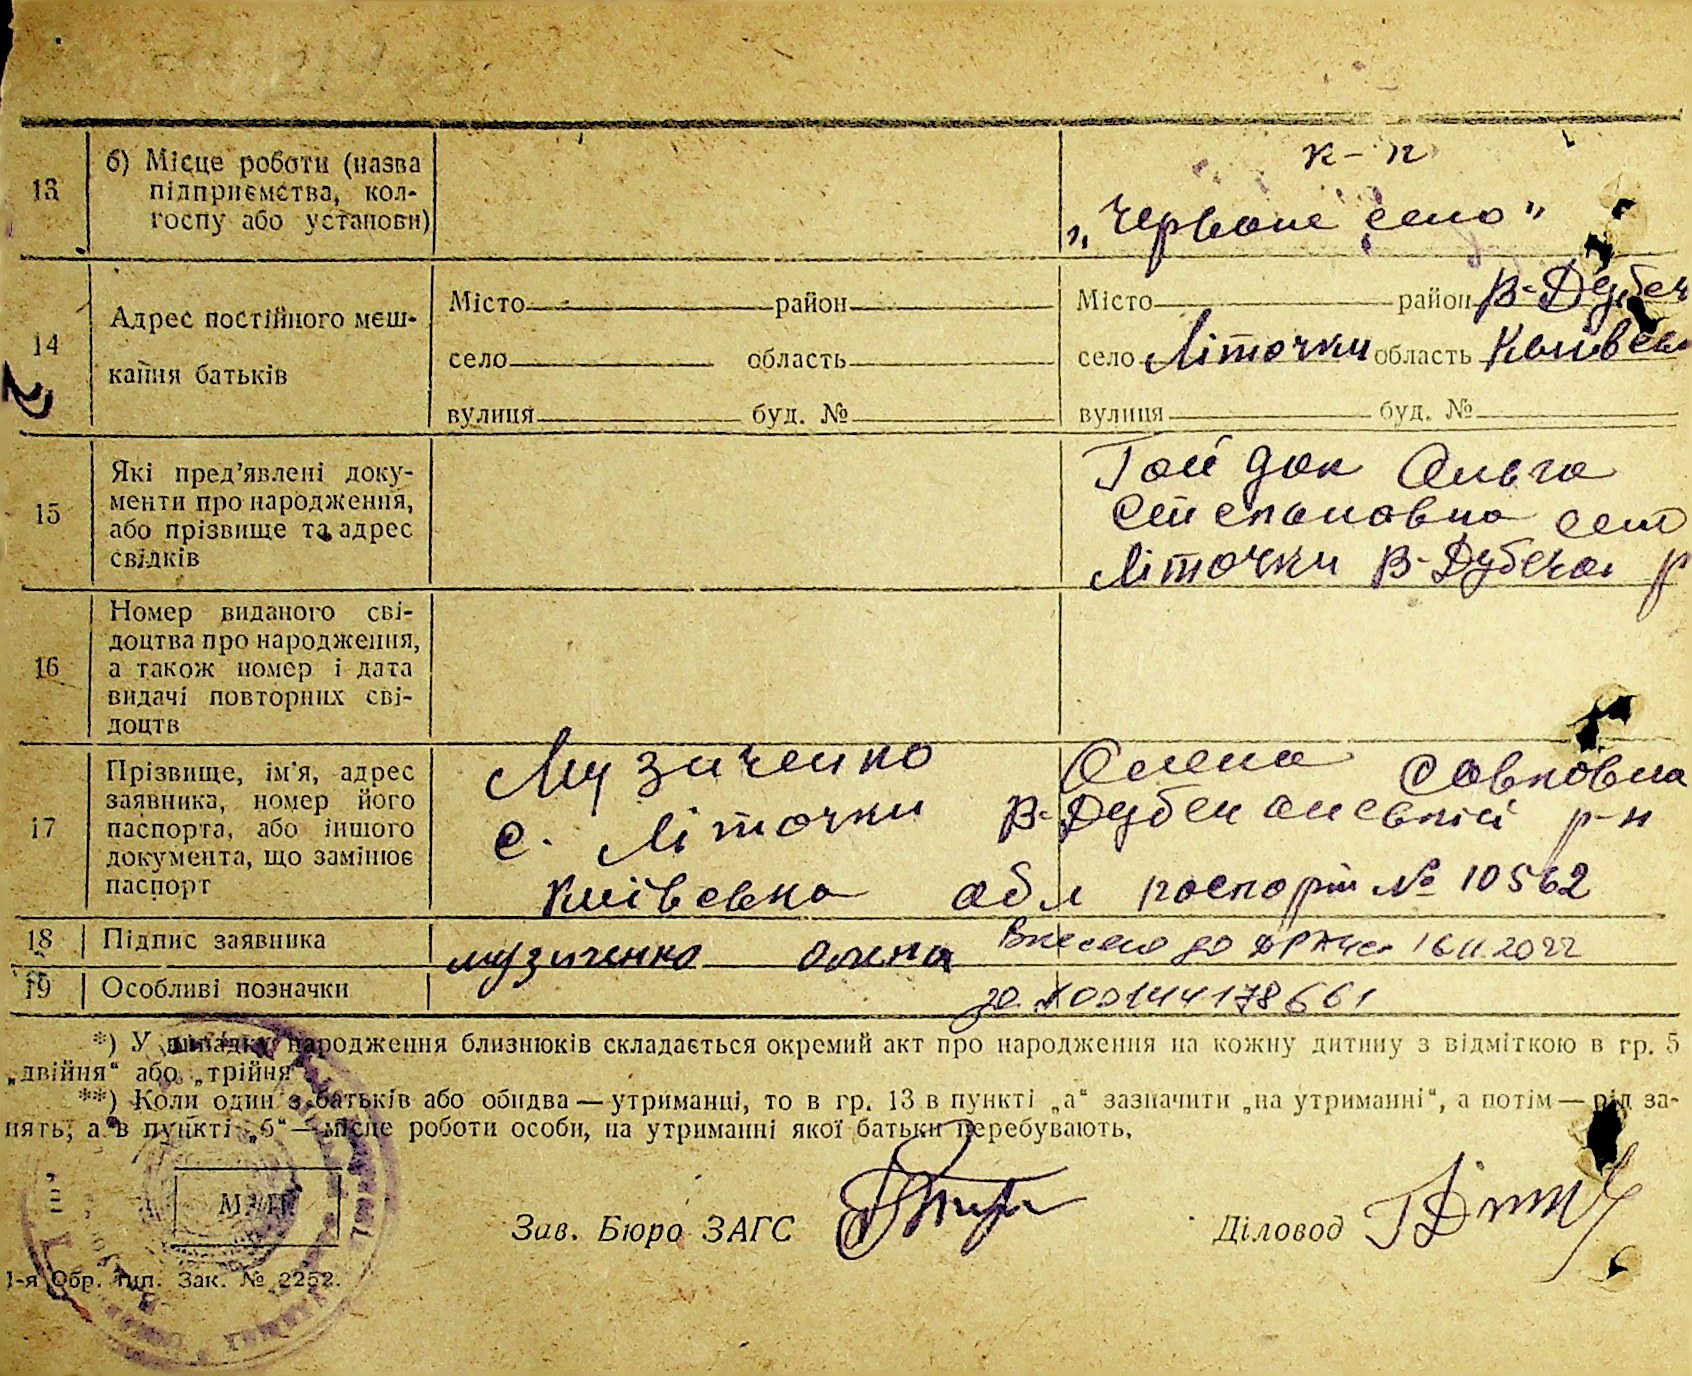 13 б) Місце роботи (назва підприємства, колгоспу або установи)
к-п
„Червоне село"
14 Адрес постійного мешкання батьків
Місто район Місто район В-Дубеч
село область село Літочки область Київськ
вулиця буд. № вулиця буд. №
15 Які пред'явлені документи про народження, або прізвище та адрес свідків
Гайдак Ольга
Степановна село
Літочки В-Дубечан р
16 Номер виданого свідоцтва про народження, а також номер і дата видачі повторних свідоцтв
17 Прізвище, ім'я, адрес заявника, номер його паспорта, або іншого документа, що замінює паспорт
Музиченко Олена Савковна
с. Літочки В-Дубечанський р-н
Київська обл паспорт № 10562
18 Підпис заявника музиченко олена Внесено до ДРАЦС 16.11.2022
19 Особливі позначки за № 00144178661
*) У випадку народження близнюків складається окремий акт про народження на кожну дитину з відміткою в гр. 5
„двійня“ або „трійня“
**) Коли один з батьків або обидва — утриманці, то в гр. 13 в пункті „а“ зазначити „на утриманні“, а потім — рід за-
нять, а в пункті „б“ — місце роботи особи, на утриманні якої батьки перебувають.
М. П.
Зав. Бюро ЗАГС
Діловод
1-я Обр. тип. Зак. № 2252.